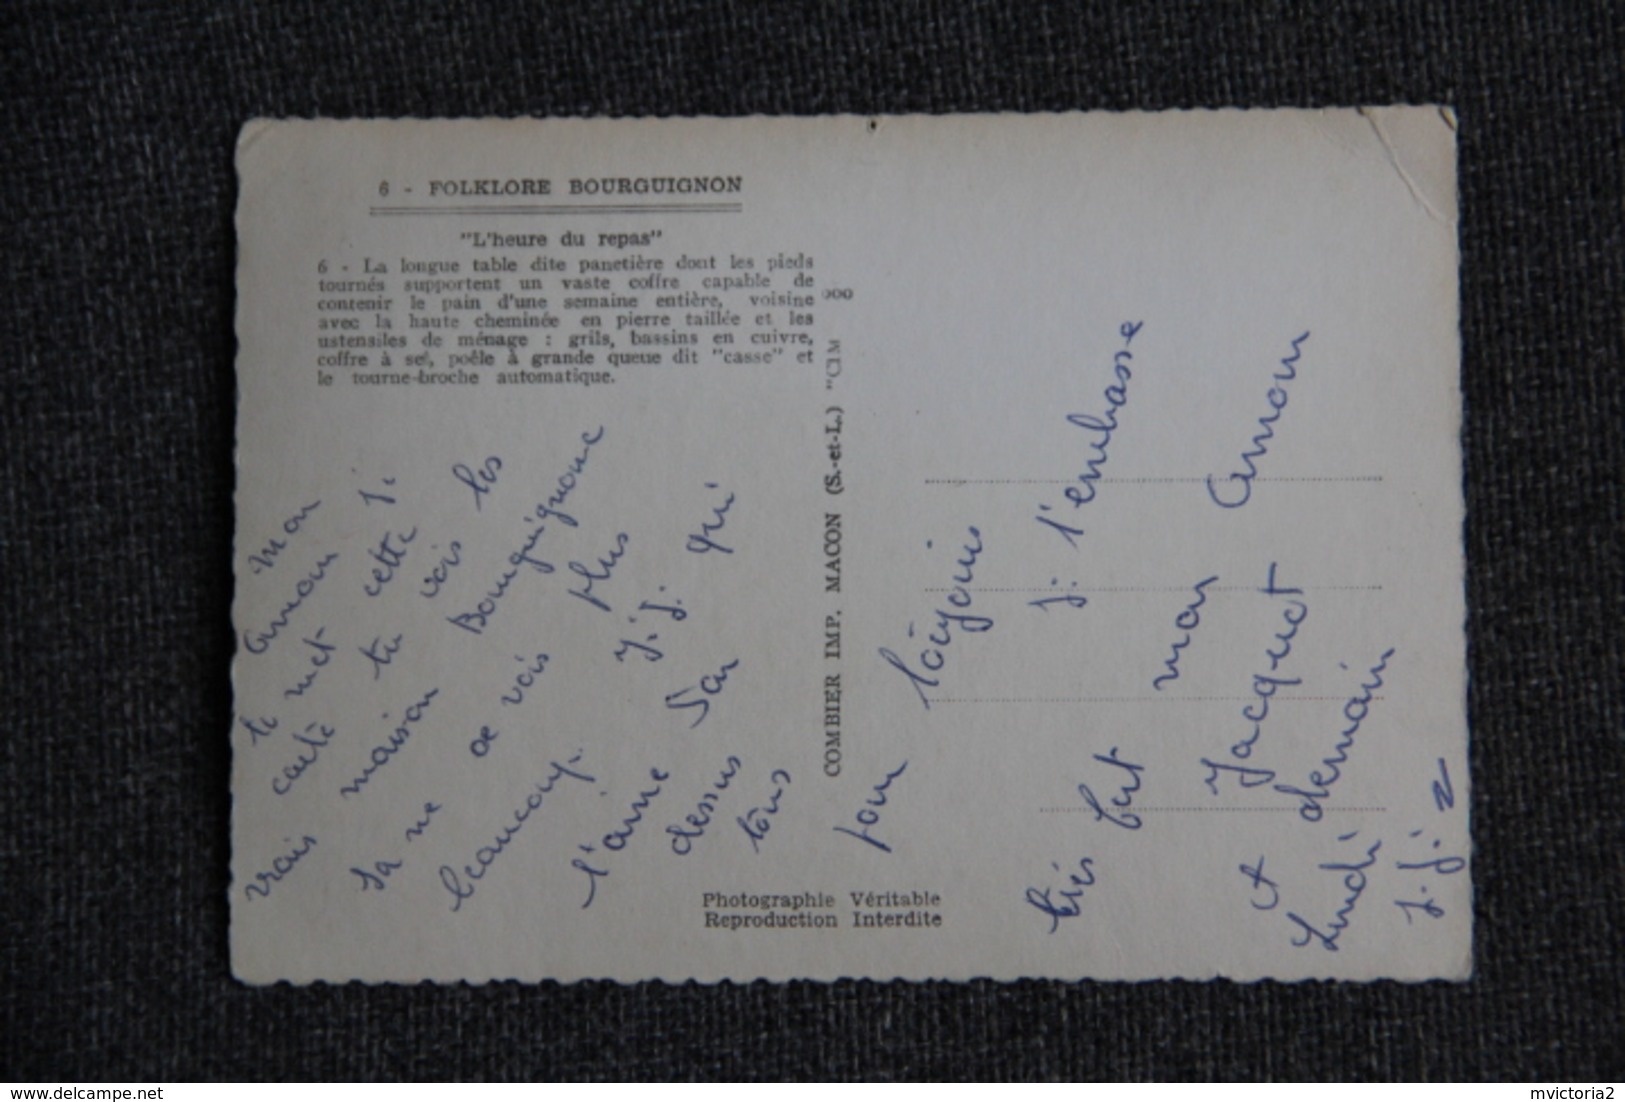 6 - FOLKLORE BOURGUIGNON
"L'heure du repas"
6 - La longue table dite panetière dont les pieds
tournés supportent un vaste coffre capable de
contenir le pain d'une semaine entière, voisine
avec la haute cheminée en pierre taillée et les
ustensiles de ménage : grils, bassins en cuivre,
coffre à sel, poêle à grande queue dit "casse" et
le tourne-broche automatique.
COMBIER IMP. MACON (S.-et-L.) "CIM
Mon
amour J.
te met cette
carte tu vois les
vrais maison Bourguignonne
sa ne se vois plus
beaucoup. J.J. qui
l'aime
dessus
tous
pour toujours
J. t'embrasse
très fort mon amour
Jacquot
et demain
Lundi
J.J.
Photographie Véritable
Reproduction Interdite
delcampe.net
mvictoria2